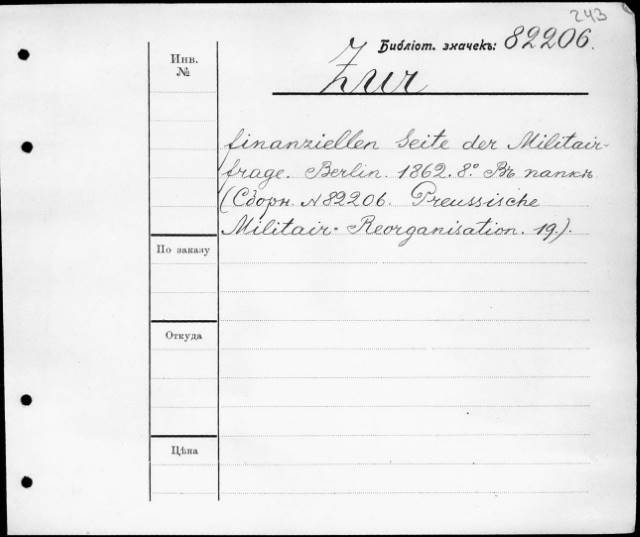 243
Библіот. значекъ: 82206.
Zur
Инв.
№
finanziellen Seite der Militair-
frage. Berlin. 1862. 8º. Въ папкѣ.
(Сборн. № 82206. Preussische
Militair-Reorganisation. 19.).
По заказу
Откуда
Цѣна